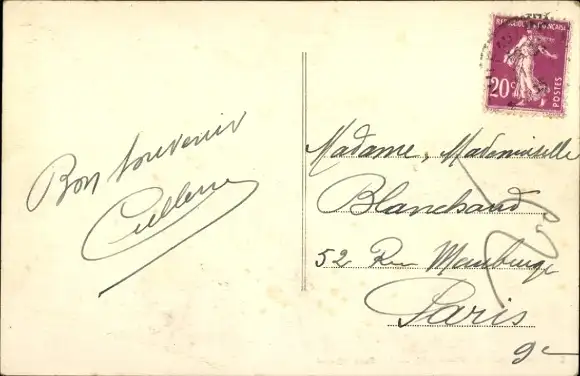 Bon souvenir
REPUBLIQUE FRANÇAISE
20c
POSTES
Madame, Mademoiselle
Blanchard
52 Rue Maubeuge
Paris
9e